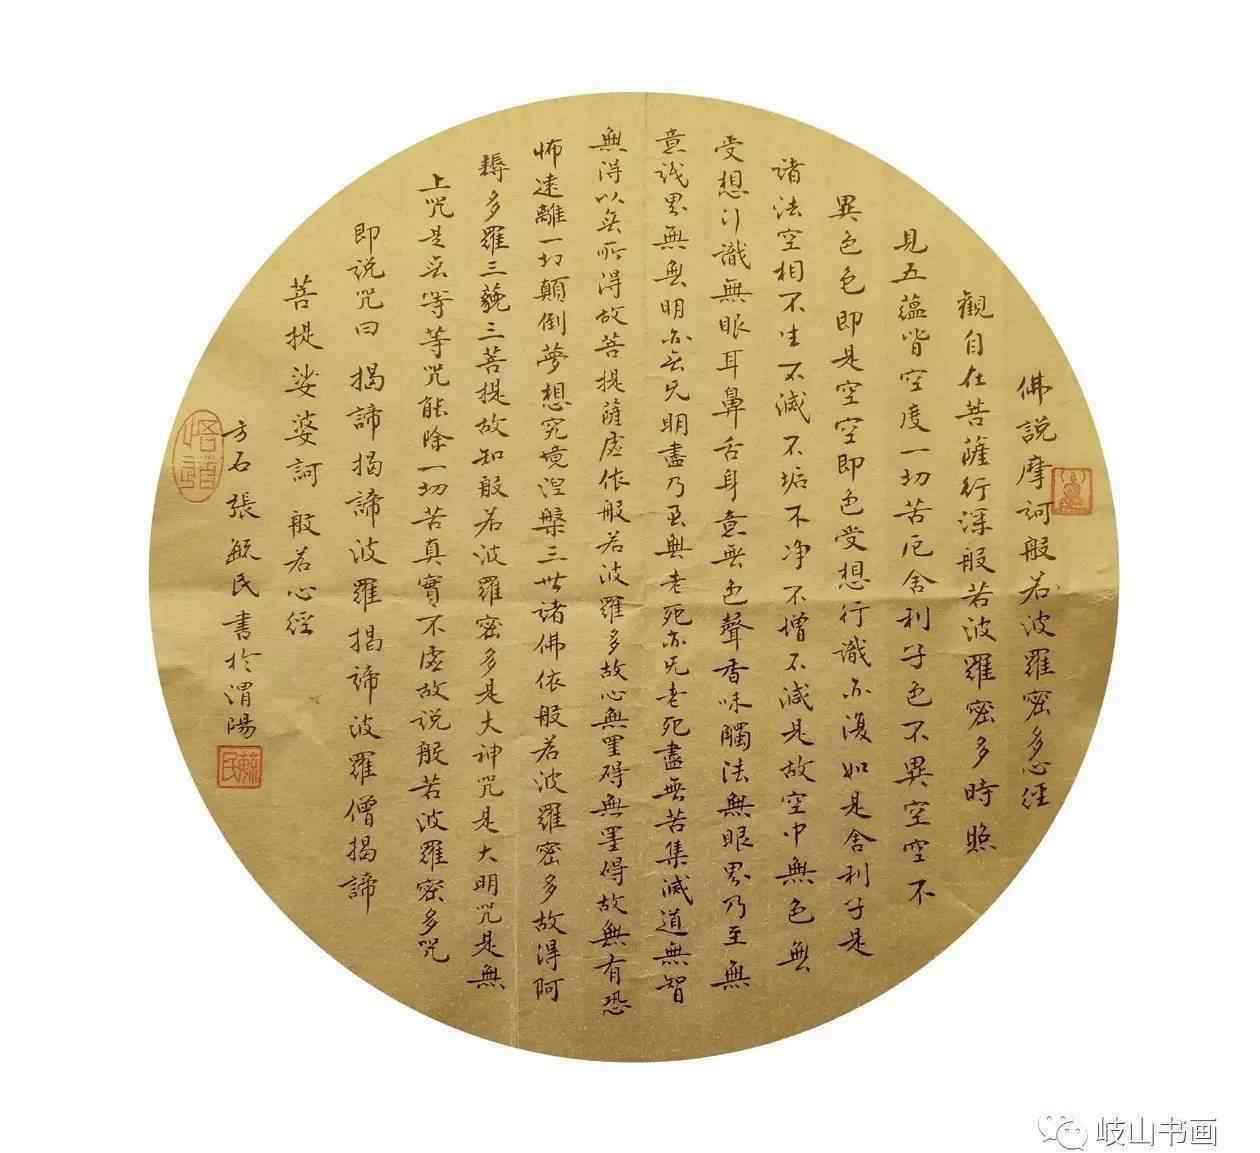 佛說摩訶般若波羅密多心經
觀自在菩薩行深般若波羅密多時照
見五蘊皆空度一切苦厄舍利子色不異空空不
異色色即是空空即色受想行識亦復如是舍利子是
諸法空相不生不滅不垢不净不增不減是故空中無色無
受想行識無眼耳鼻舌身意無色聲香味觸法無眼界乃至無
意識界無無明亦无無明盡乃至無老死亦无老死盡無苦集滅道無智
無得以无所得故菩提薩虛依般若波羅多故心無罣碍無罣碍故無有恐
怖遠離一切顛倒夢想究境涅槃三世諸佛依般若波羅密多故得阿
耨多羅三藐三菩提故知般若波羅密多是大神咒是大明咒是無
上咒是无等等咒能除一切苦真實不虛故说般若波羅密多咒
即说咒曰 揭諦揭諦波羅揭諦波羅僧揭諦
菩提娑婆訶 般若心經
方石張毓民書於渭陽
悟道
毓民
岐山书画